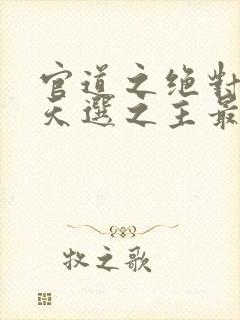 官道之绝對
天選之主最
牧之歌